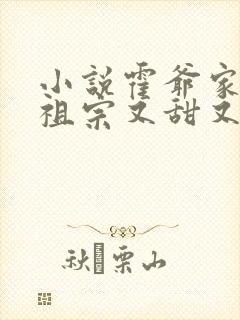 小說霍爺家
祖宗又甜又
秋栗山